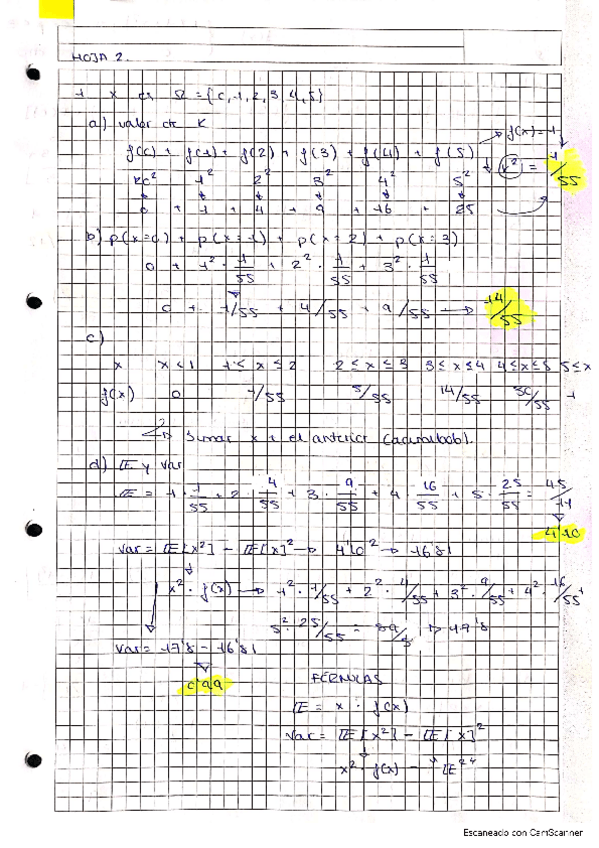 HOJA 2.
1 x es Ω = {0, 1, 2, 3, 4, 5}
a) valor de K
f(0) + f(1) + f(2) + f(3) + f(4) + f(5) → f(x) = 1
K0² 1² 2² 3² 4² 5² = 1/55
0 + 1 + 4 + 9 + 16 + 25
b) p(x=0) + p(x=1) + p(x=2) + p(x=3)
0 + 1² · 1/55 + 2² · 1/55 + 3² · 1/55
0 + 1/55 + 4/55 + 9/55 → 14/55
c)
x x<1 1≤x≤2 2≤x≤3 3≤x≤4 4≤x≤5 5≤x
f(x) 0 1/55 5/55 14/55 30/55 1
Sumar x + el anterior (acumulado).
d) E y Var
E = 1 · 1/55 + 2 · 4/55 + 3 · 9/55 + 4 · 16/55 + 5 · 25/55 = 45/11
4'10
Var = E[x²] - E[x]² → 4'10² → 16'81
x² · f(x) → 1² · 1/55 + 2² · 4/55 + 3² · 9/55 + 4² · 16/55 +
5² · 25/55 = 89/5 → 17'8
Var = 17'8 - 16'81
0'99
FÓRMULAS
E = x · f(x)
Var = E[x²] - E[x]²
x² · f(x) -
Escaneado con CamScanner